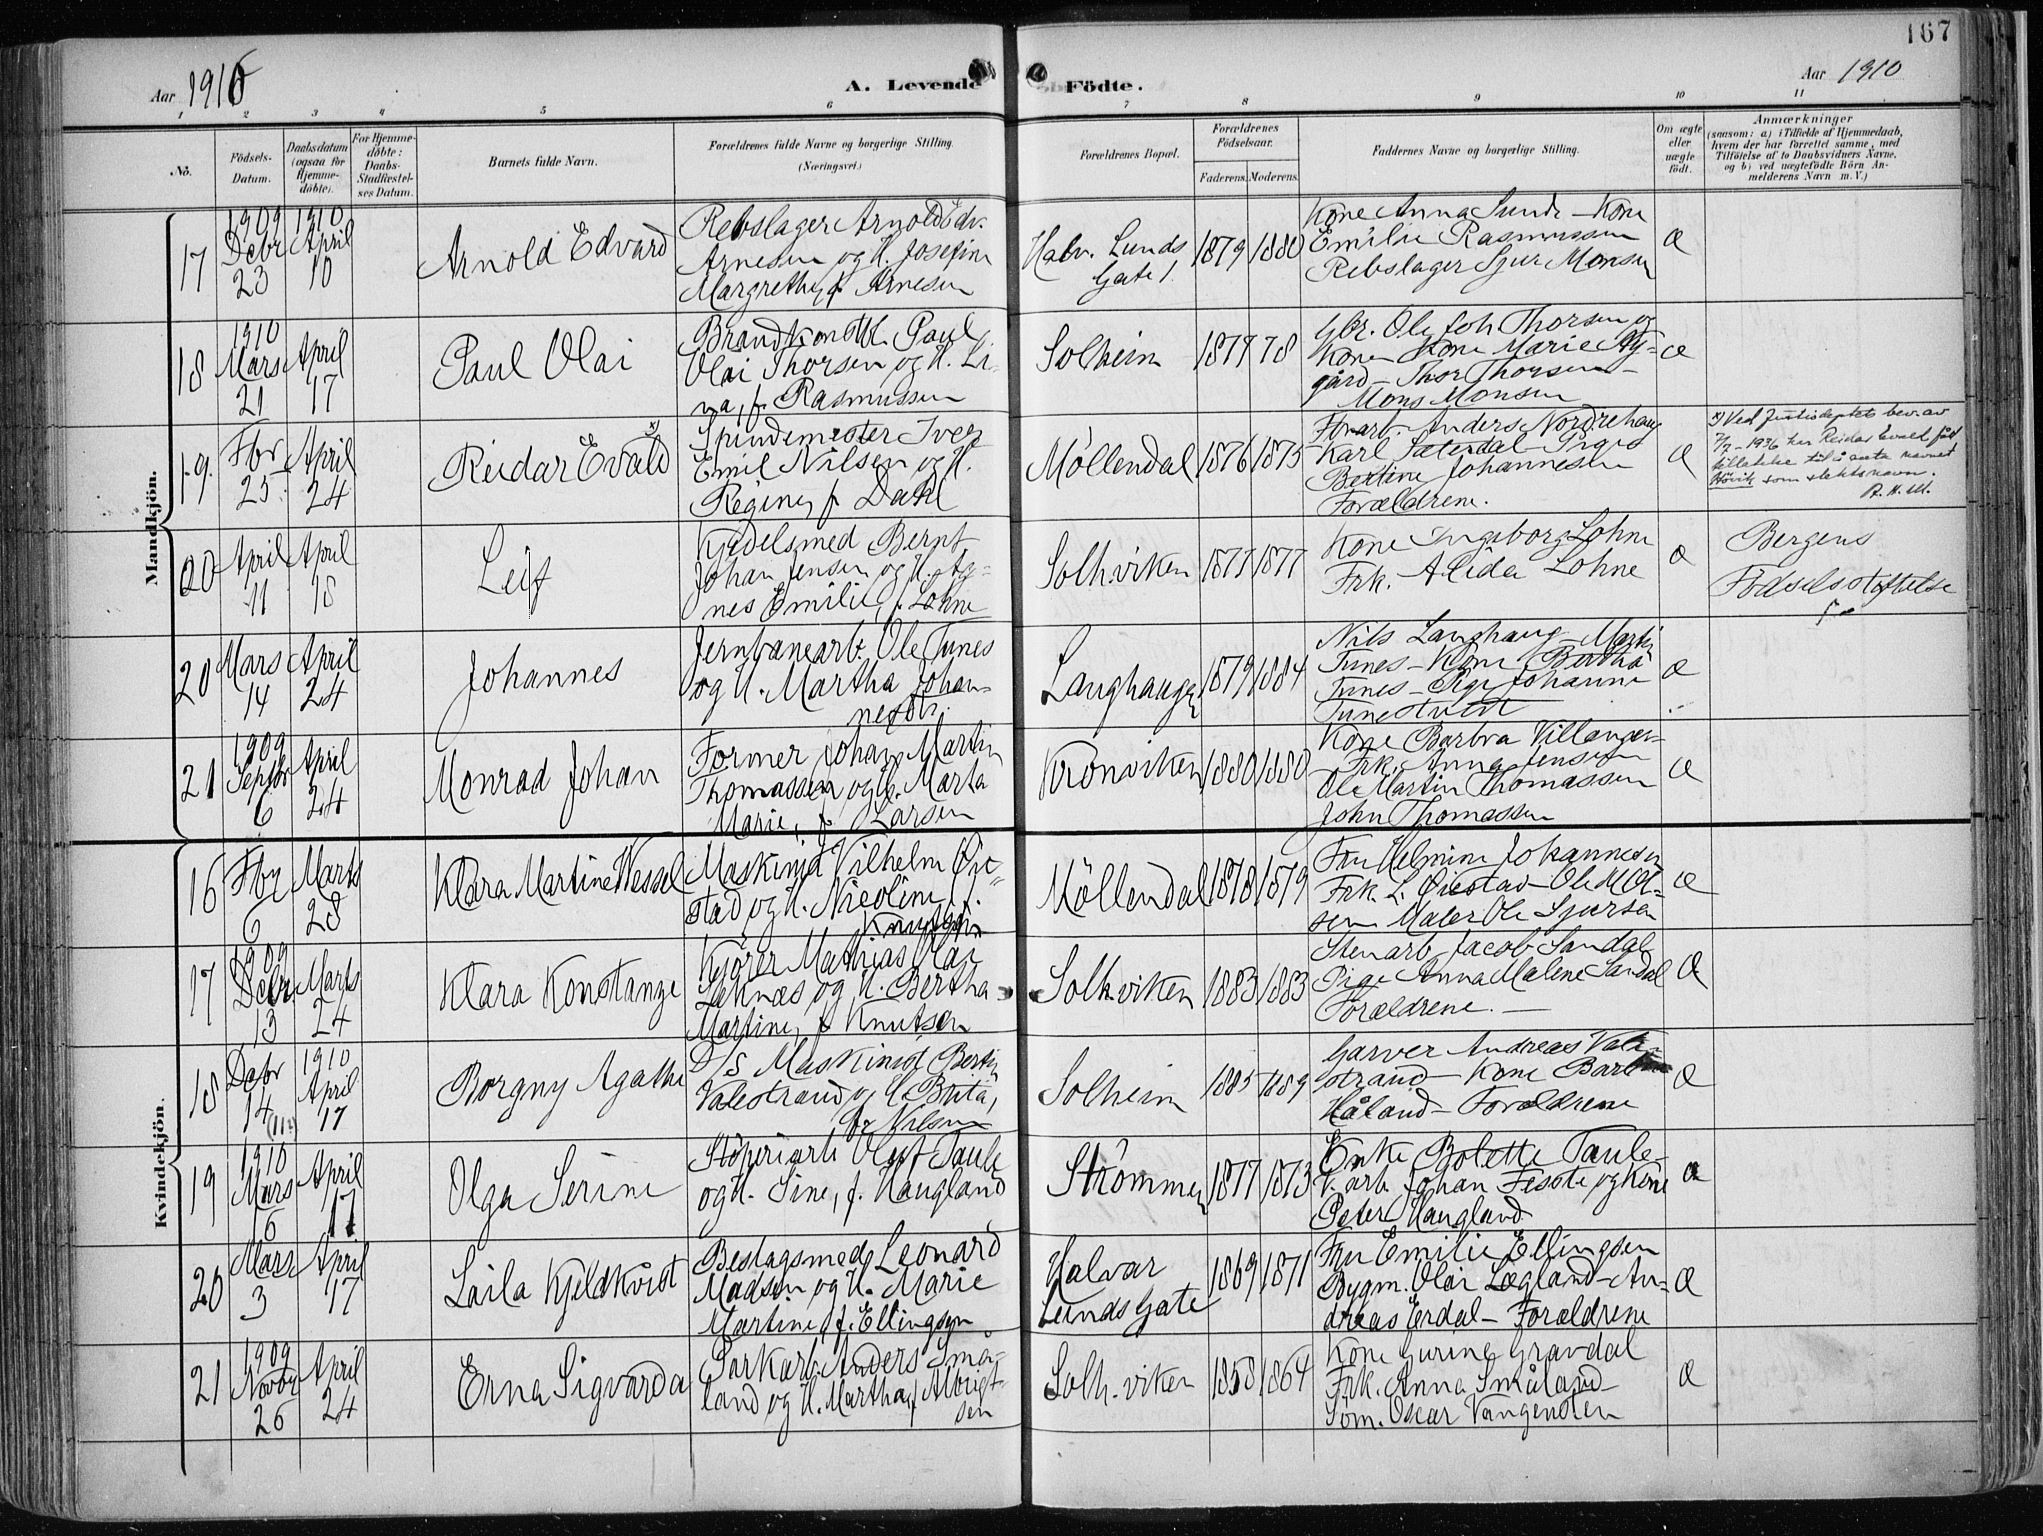 167
Aar 1910
A. Levende Födte.
Aar 1910
1 2 3 4 5 6 7 8 9 10 11
No.
Födsels-Datum.
Daabsdatum (ogsaa for Hjemmedöbte).
For Hjemmedöbte: Daabs-Stadfæstelses Datum.
Barnets fulde Navn.
Forældrenes fulde Navne og borgerlige Stilling. (Næringsvei.)
Forældrenes Bopæl.
Forældrenes Födselsaar.
Faderens. Moderens.
Faddernes Navne og borgerlige Stilling.
Om ægte eller uægte födt.
Anmærkninger
(saasom: a) i Tilfælde af Hjemmedaab,
hvem der har forrettet samme, med
Tilföielse af to Daabsvidners Navne,
og b) ved uægtefödte Börn Anmelderens Navn m. V.)
Mandkjön.
17
1909 Decbr 23
1910 April 10
Arnold Edvard
Rebslager Arnold Edv.
Arnesen og H. Josefine
Margrethe, f. Arnesen
Halv. Lunds
Gate 1.
1879 1880
Kone Anna Sunde – Kone
Emilie Rasmussen
Rebslager Sjur Monsen
Æ
18
1910 Mars 21
April 17
Paul Olai
Brandkonst. Paul
Olai Thorsen og H. Li-
na, f. Rasmussen
Solheim
1877 78
Gbr. Ole Joh Thorsen og
Kone Kone Marie Ny-
gård – Thor Thorsen –
Mons Monsen
Æ
19.
Fbr 25
April 24
Reidar Evald x)
Spindemester Iver
Emil Nilsen og H.
Regine, f. Dahl
Möllendal
1876 1875
Fbrarb. Anders Nordrehaug
Karl Sæterdal – Pige
Bertine Johannesen
Forældrene.
Æ
x) Ved Justisdeptets bev. av
7/7 – 1936 har Reidar Evald fått
tillatelse til å anta navnet
Hövik som slektsnavn.
20
April 11
April 18
Leif
Kjedelsmed Bernt
Johan Jensen og H. Ag-
nes Emilie, f. Lohne
Solh.viken
1877 1877
Kone Ingeborg Lohne
Frk. Alida Lohne
Æ
Bergens
Födselsstiftelse
20
Mars 14
April 24
Johannes
Jernbanearb. Ole Tunes
og H. Martha Johan-
nesdtr.
Langhaugen
1879 1884
Nils Langhaug – Martin
Tunes – Kone Bertha
Tunes – Pige Johanne
Tunestveit
Æ
21
1909 Septbr 6
April 24
Monrad Johan
Former Johan Martin
Thomassen og H. Marta
Marie, f. Larsen
Kronviken
1880 1880
Kone Barbra Villanger –
Frk. Anna Jensen
Ole Martin Thomassen
John Thomassen
Æ
Kvindekjön.
16
Fbr 6
Marts 28
Klara Martine Wessel
Maskinist Vilhelm Øie-
stad og H. Nicoline, f.
Knudsen
Möllendal
1878 1879
Fru Helmine Johannesen
Frk. L. Øiestad – Ole M Ol-
sen Maler Ole Sjursen
Æ
17
1909 Decbr 13
Marts 24
Klara Konstanze
Kjører Mathias Olai
Saknæs og H. Bertha
Martine, f Knutsen
Solh.viken
1883 1883
Stenarb. Jacob Sandal
Pige Anna Malene Sandal
Forældrene. –
Æ
18
Decbr 14 (11)
1910 April 17
Borgny Agathe
D/S Maskinist Bertin
Valestrand og H Brita,
f. Nilsen
Solheim
1885 1889
Garver Andreas Vale-
strand – Kone Barbra
Håland – Forældrene
Æ
19
1910 Mars 16
April 17
Olga Serine
Stöperiarb Oluf Taule
og H. Sine, f. Haugland
Strömmen
1877 1873
Enke Bolette Taule –
Arb. Johan Feste og Kone
Peter Haugland
Æ
20
Mars 3
April 17
Laila Kjeldkvist
Beslagsmed Leonard
Madsen og H. Marie
Martine, f. Ellingsen
Halvar
Lunds Gate
1869 1871
Fru Emilie Ellingsen
Bygm. Olai Lægland – An-
dreas Erdal – Forældrene
Æ
21
1909 Novbr 26
April 24
Erna Sigvarda
Parkarb. Anders Små-
land og H. Martha, f Albrigt-
sen
Solh.viken
1858 1864
Kone Gurine Gravdal
Frk. Anna Småland –
Söm. Oscar Vangensten
Æ